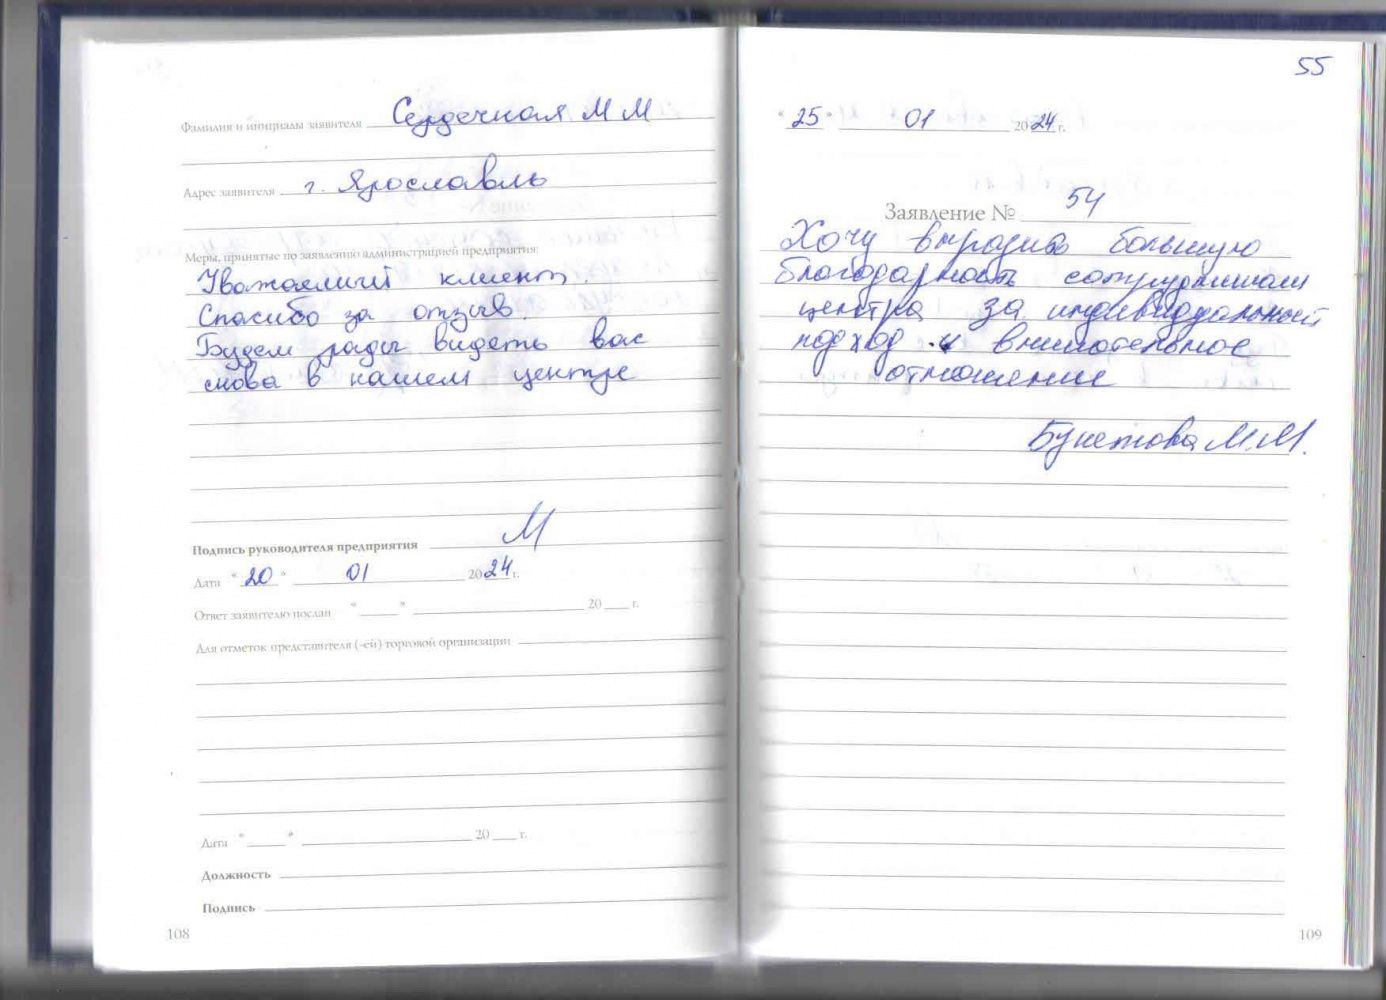 Фамилия и инициалы заявителя Сердечная М М
Адрес заявителя г. Ярославль
Меры, принятые по заявлению администрацией предприятия:
Уважаемый клиент.
Спасибо за отзыв.
Будем рады видеть вас
снова в нашем центре
Подпись руководителя предприятия М
Дата "20" 01 2024 г.
Ответ заявителю послан "____" ____ 20 ___ г.
Для отметок представителя (-ей) торговой организации
Дата "____" ____ 20 ___ г.
Должность
Подпись
108
55
"25" 01 2024 г.
Заявление № 54
Хочу выразить большую
благодарность сотрудникам
центра за индивидуальный
подход и внимательное
отношение
Букетова М.М.
109